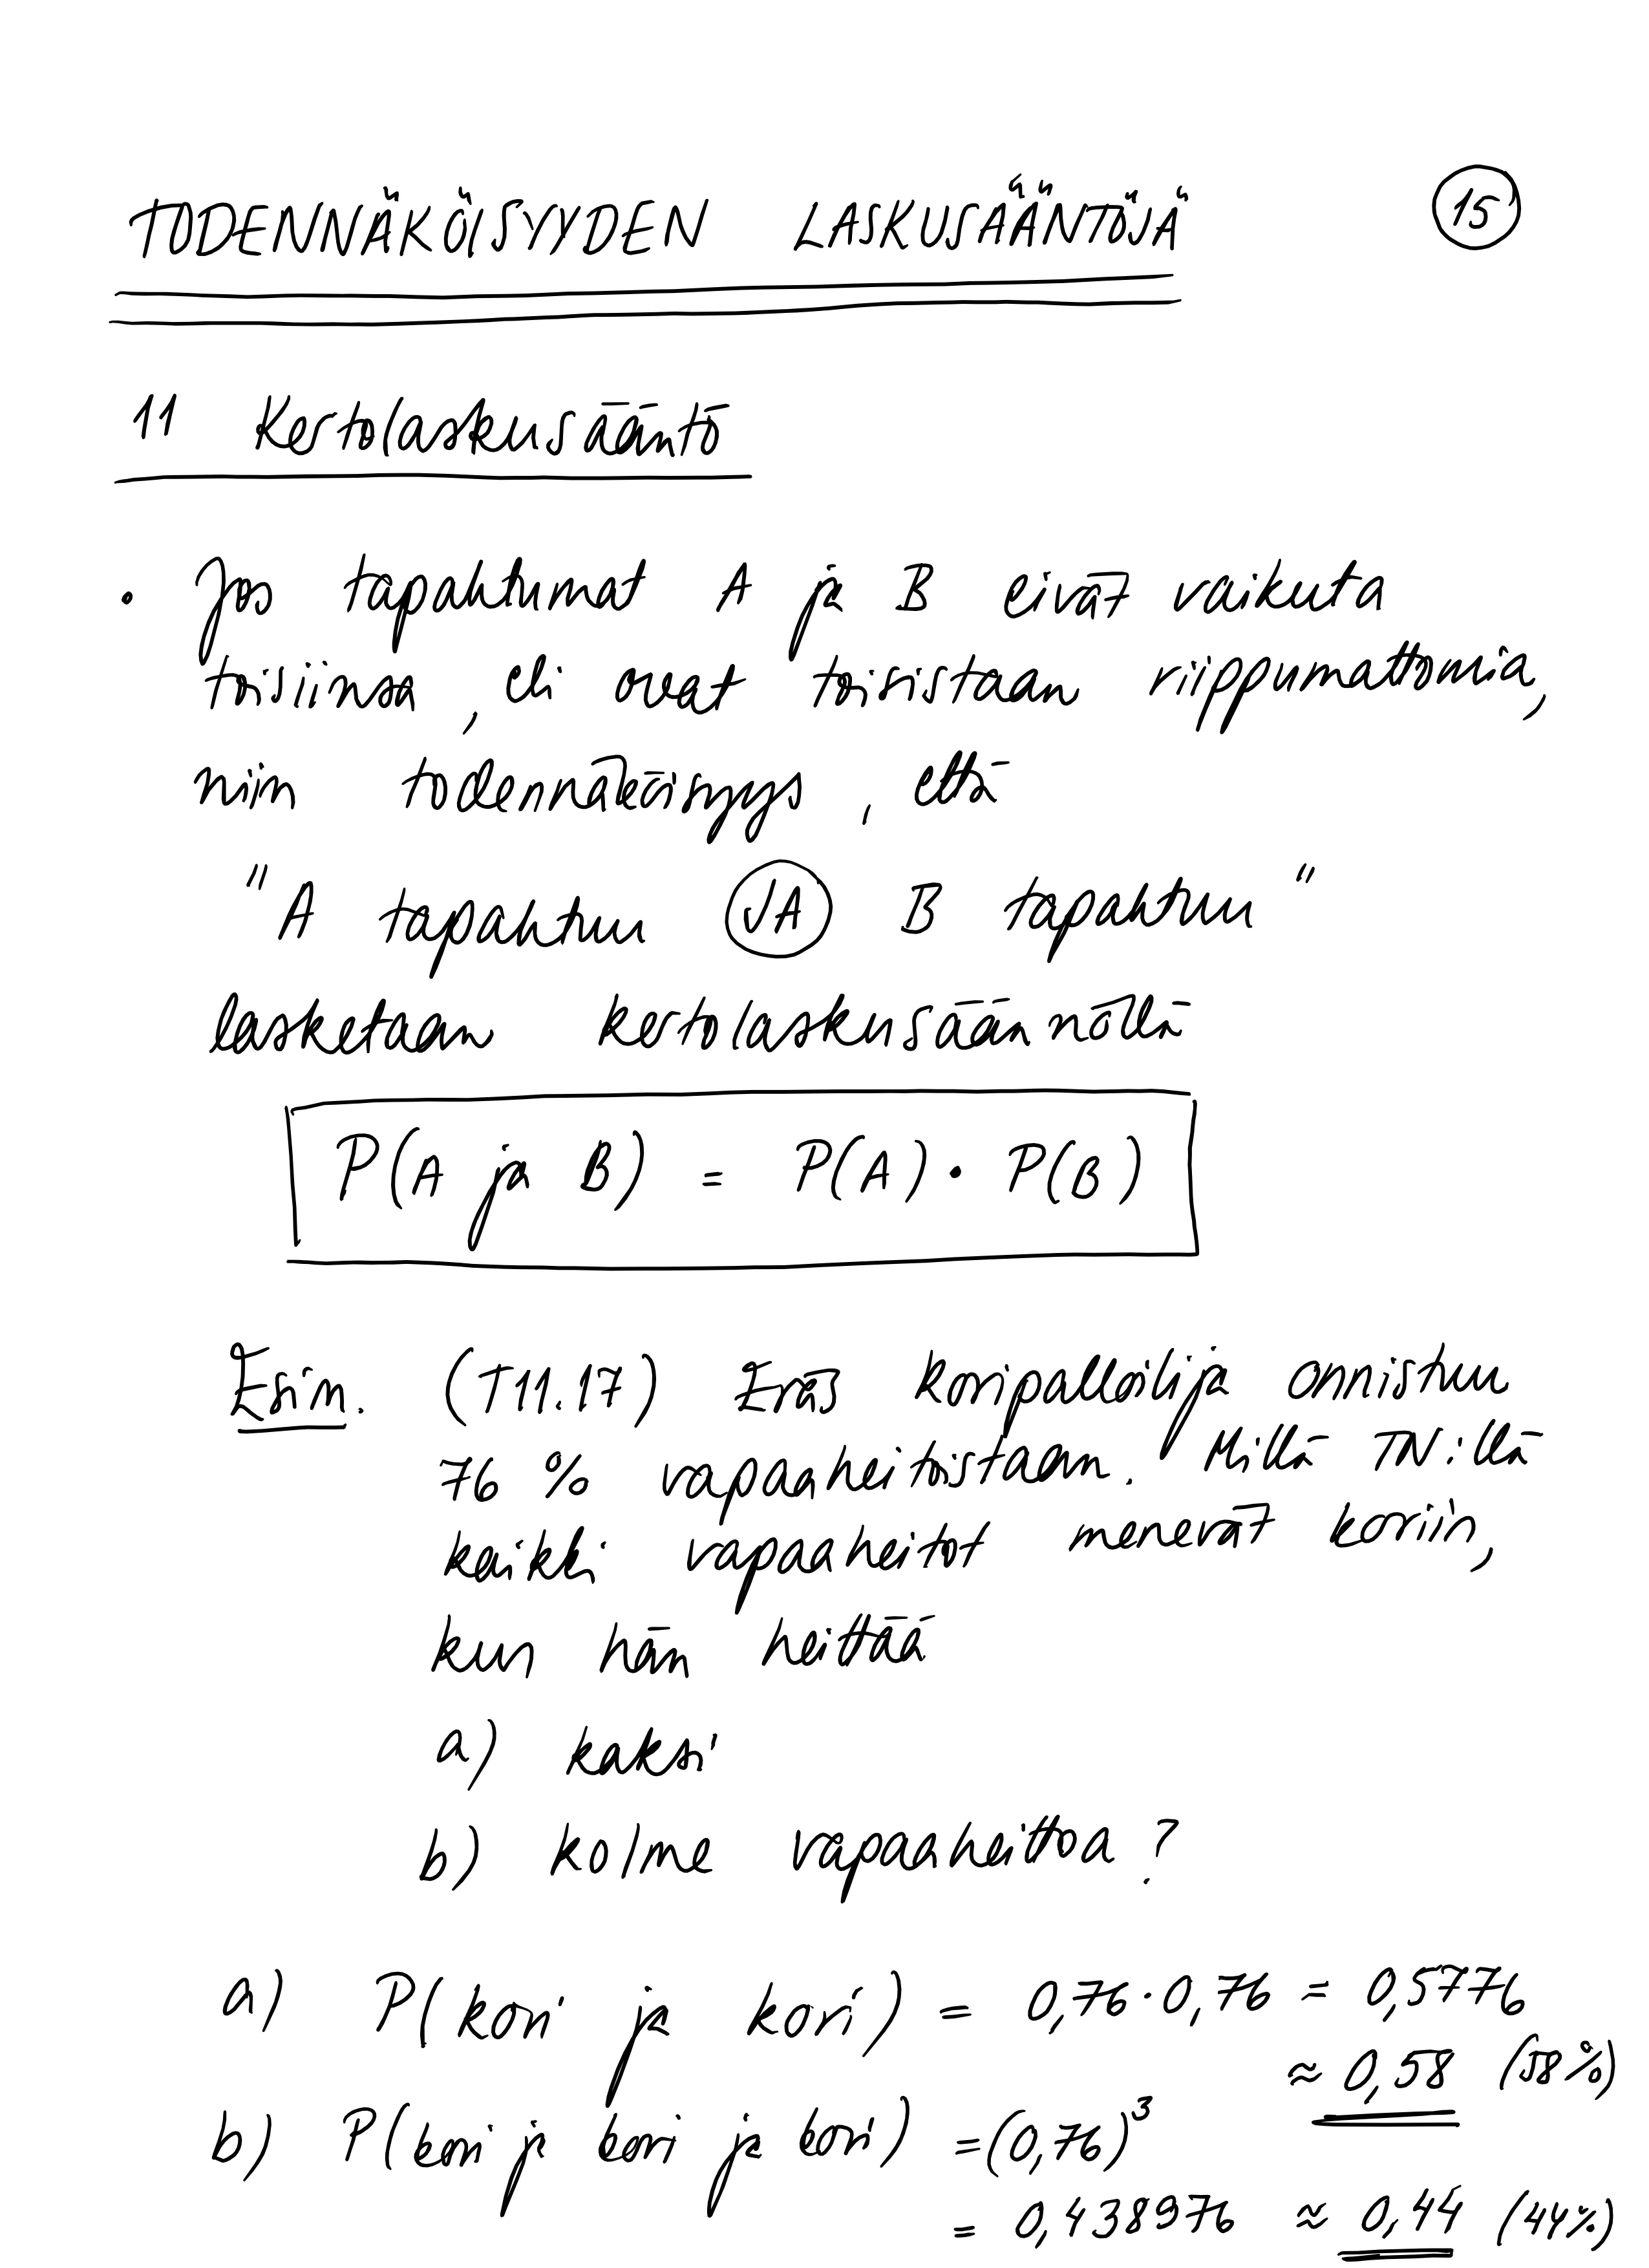 TODENNÄKÖISYYDEN LASKUSÄÄNTÖJÄ 15
11 Kertolaskusääntö
• Jos tapahtumat A ja B eivät vaikuta
toisiinsa, eli ovat toisistaan riippumattomia,
niin todennäköisyys, että
"A tapahtuu JA B tapahtuu"
lasketaan kertolaskusäännöllä
P(A ja B) = P(A) • P(B)
Esim. (T11.17) Eräs koripalloilija onnistuu
76 % vapaaheitoistaan. Millä TN:llä
kaikki vapaaheitot menevät koriin,
kun hän heittää
a) kaksi
b) kolme vapaaheittoa?
a) P(kori ja kori) = 0,76·0,76 = 0,5776
≈ 0,58 (58%)
b) P(kori ja kori ja kori) = (0,76)³
= 0,438976 ≈ 0,44 (44%)